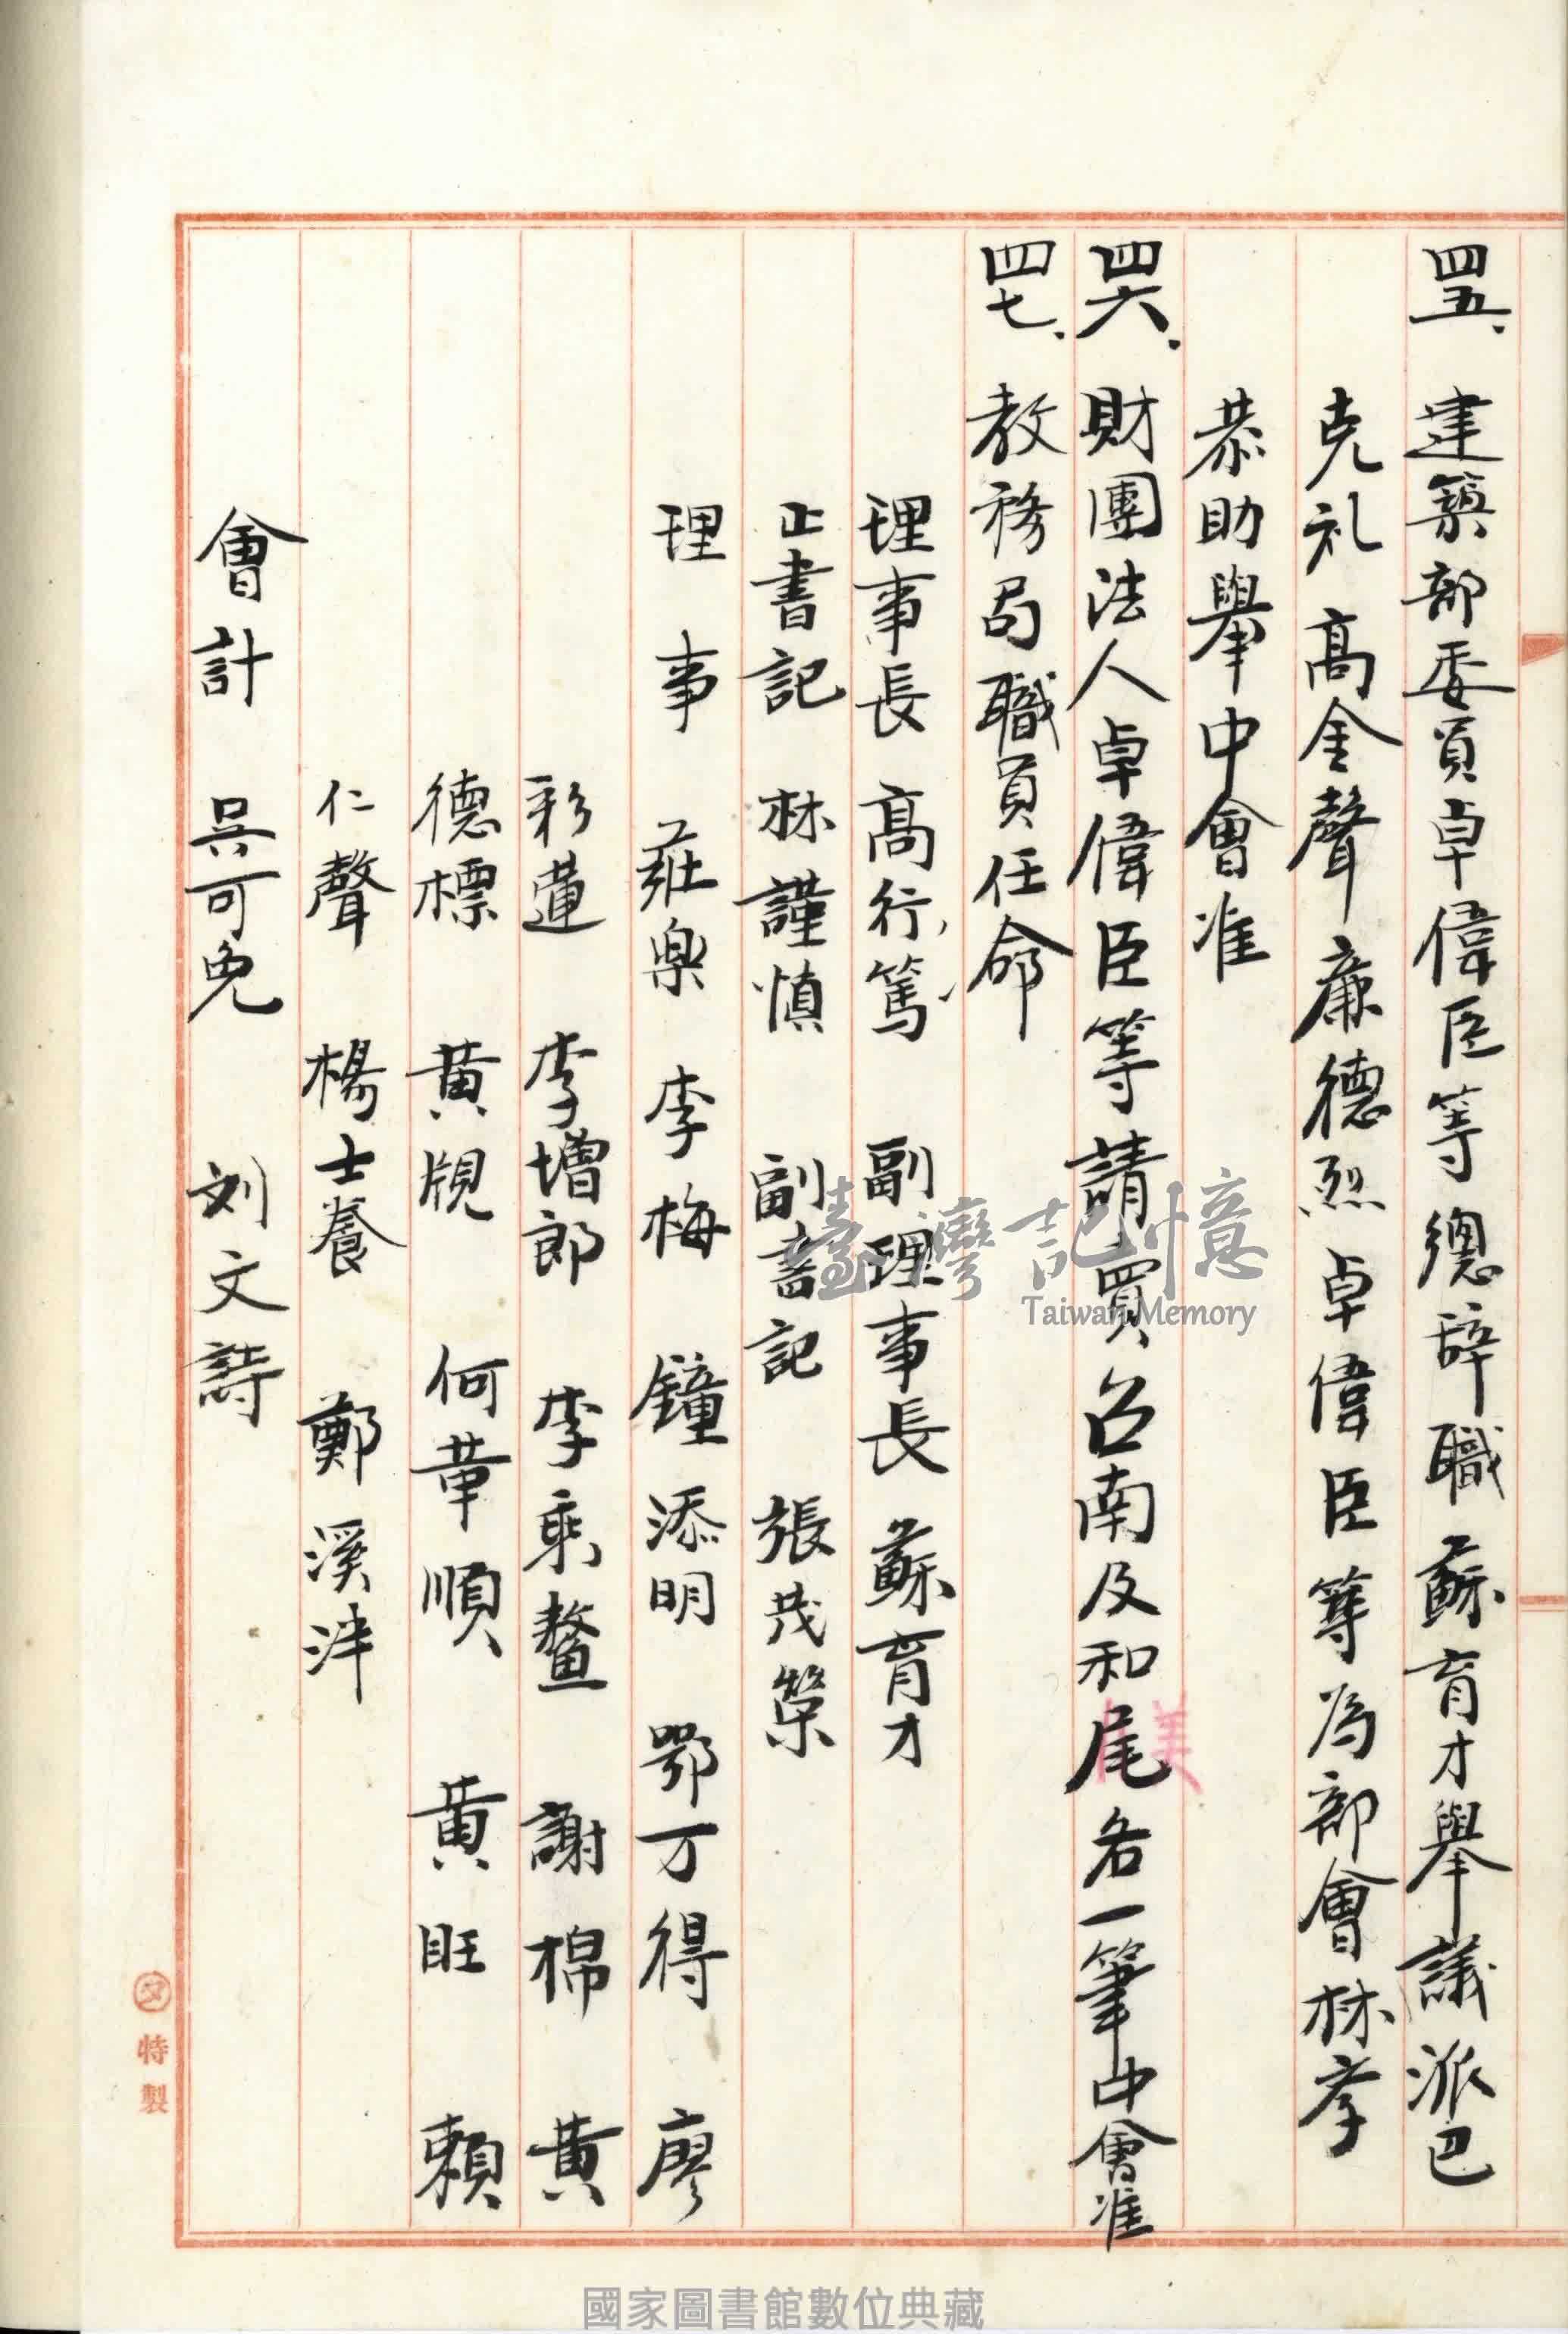 四五、建築部委員卓偉臣等總辞職蘇育才舉議派巴
克礼 高金聲 廉德烈 卓偉臣等為部會林孝
恭助舉中會准
四六、財團法人卓偉臣等請買台南及和尾各一筆中會准
美
四七、教務局職員任命
理事長 高行篤 副理事長 蘇育才
正書記 林謹慎 副書記 張茂榮
理事 莊樂 李梅 鐘添明 鄂万得 廖
彩蓮 李增郎 李乘鰲 謝棉 黃
德標 黃覎 何華順 黃旺 賴
仁聲 楊士養 鄭溪泮
會計 吳可免 刘文詩
特製
臺灣記憶
Taiwan Memory
國家圖書館數位典藏